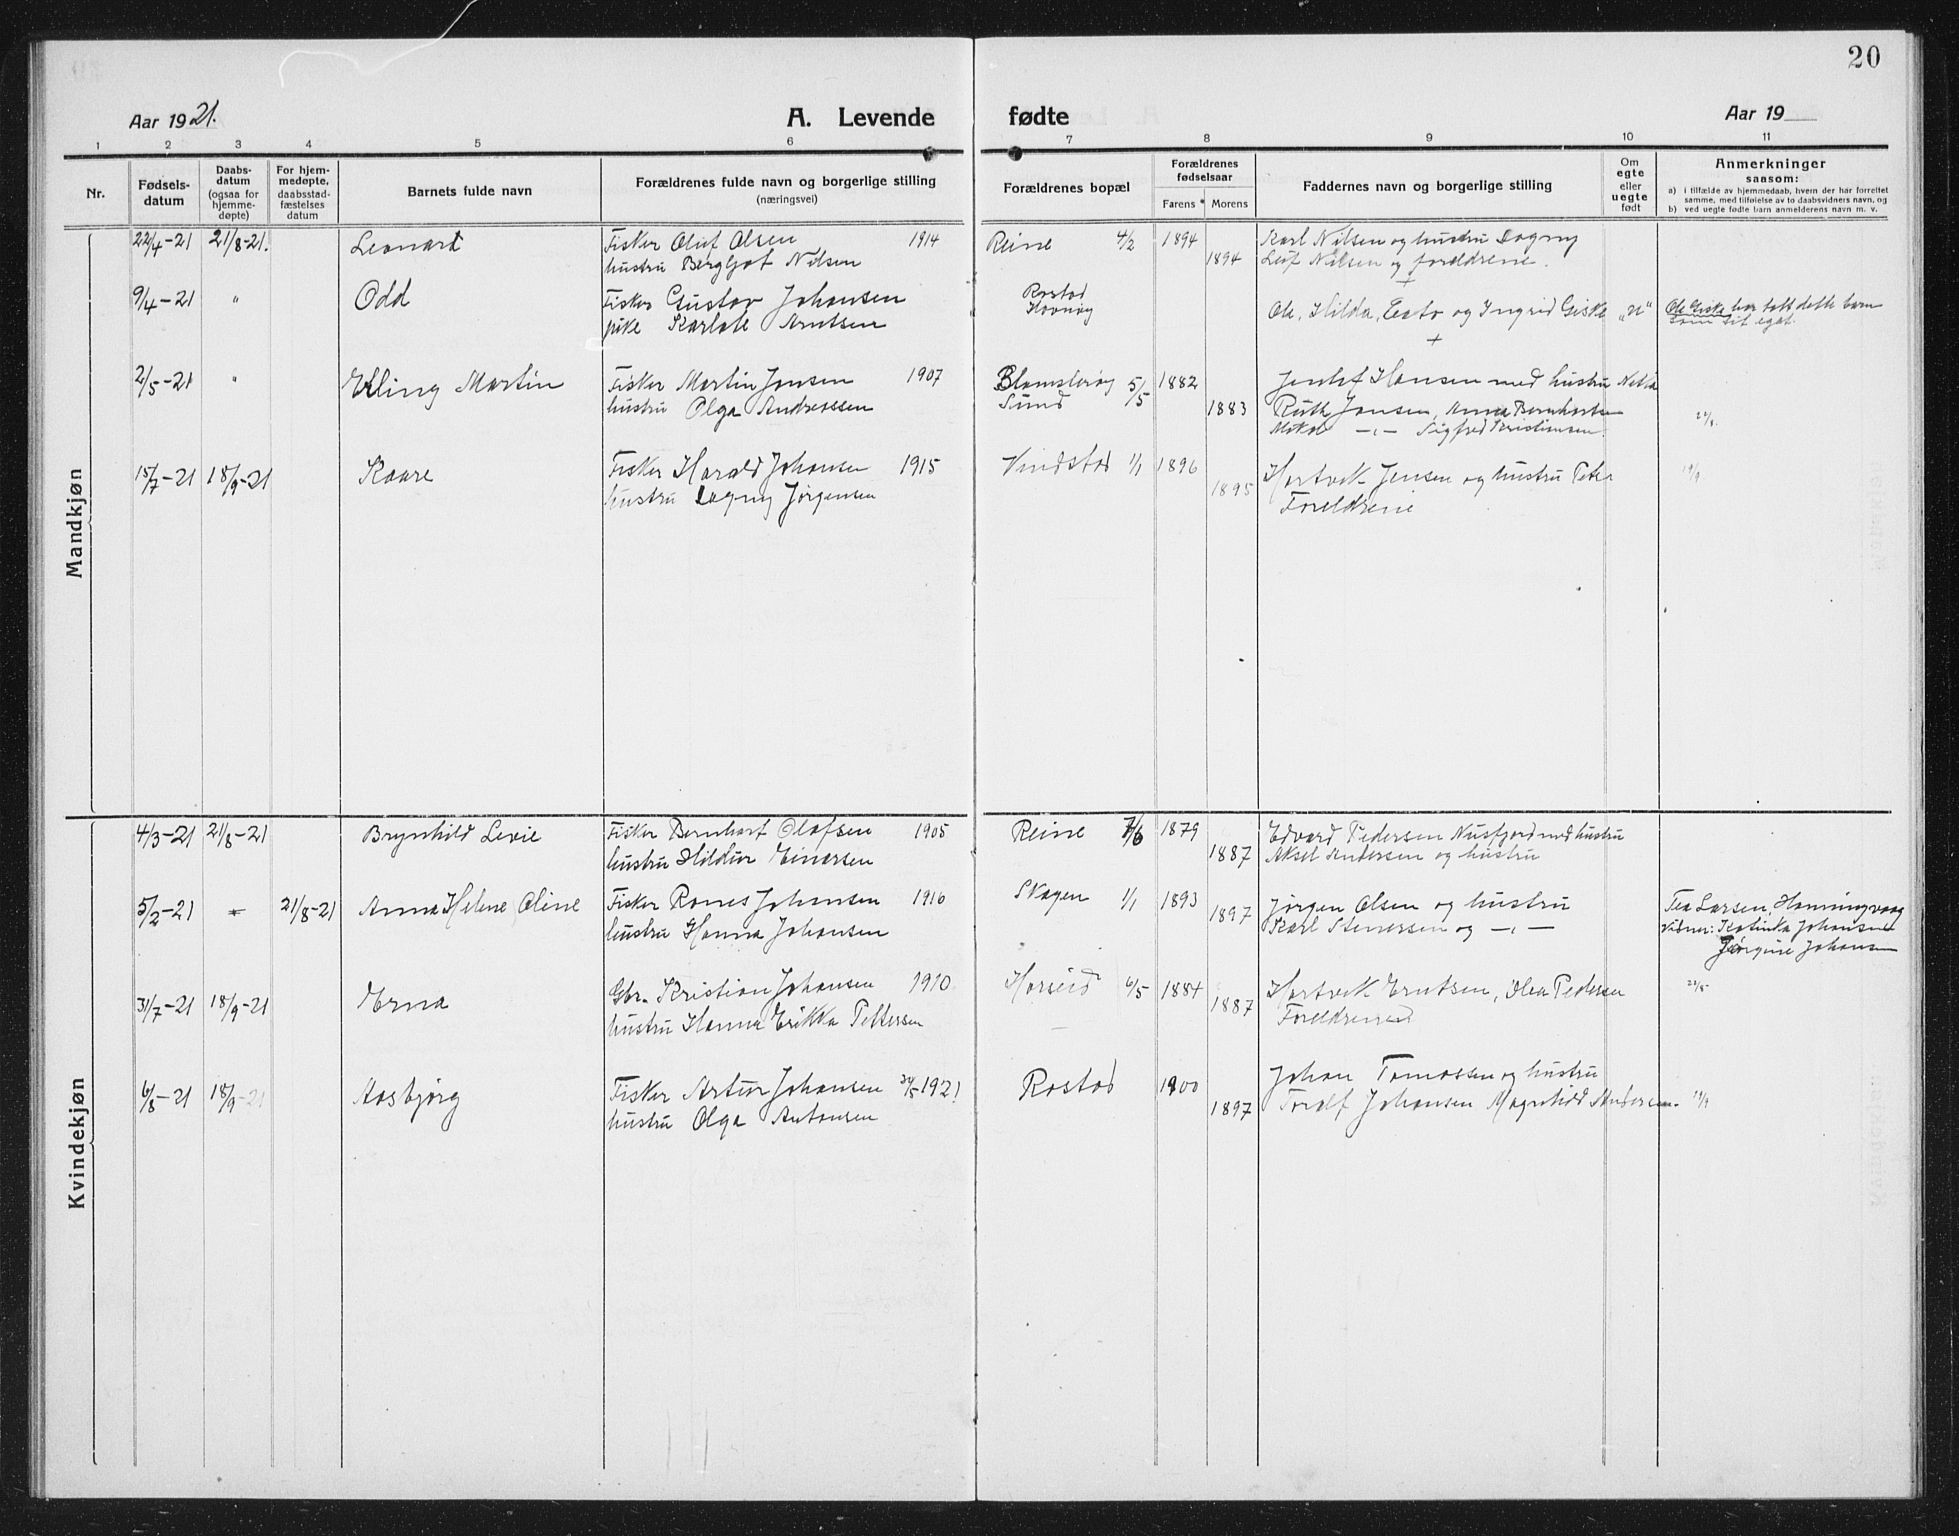 20
Aar 1921.
A. Levende fødte
Aar 19
1 2 3 4 5 6 7 8 9 10 11
Nr.
Fødsels-
datum
Daabs-
datum
(ogsaa for
hjemme-
døpte)
For hjem-
medøpte,
daabsstad-
fæstelses
datum
Barnets fulde navn
Forældrenes fulde navn og borgerlige stilling
(næringsvei)
Forældrenes bopæl
Forældrenes
fødselsaar
Farens Morens
Faddernes navn og borgerlige stilling
Om
egte
eller
uegte
født
Anmerkninger
saasom:
a) i tilfælde av hjemmedaab, hvem der har forrettet
samme, med tilføielse av to daabsvidners navn, og
b) ved uegte fødte barn anmelderens navn m. v.
Mandkjøn
22/4-21 21/8-21. Leonart Fisker Oluf Olsen 1914 Reine 4/2 1894 Karl Nilsen og hustru Dagny
hustru Bergljot Nilsen 1894 Leif Nilsen og foreldrene.
9/4-21 " Odd Fisker Gustav Johansen Rostad
pike Karlote Arntsen Havnøy Ole, Hilda, og Ingrid Giske "u" Ole Giske har tatt dette barn
som sit eget.
2/5-21 " Elling Martin Fisker Martin Jensen 1907 5/5 1882 Hansen med hustru Netta
hustru Olga Andreassen Sund 1883 Ruth Jensen, Anna Bernhartsen
-"- Sigfred Kristiansen.
15/7-21 18/9-21 Kaare Fisker Harald Johansen 1915 Vindstad 1/1 1896 Hartvik Jensen og hustru
hustru Dagny Jørgensen 1895 Foreldrene 19/9
Kvindekjøn
4/3-21 21/8-21 Brynhild Levie Fisker Bernhart Olafsen 1905 Reine 7/6 1879 Edvard Pedersen Nusfjord med hustru
hustru Hildur Einarsen 1887 Aksel Andersen og hustru
5/2-21 " 21/8-21 Anna Helene Oline Fisker Rones Johansen 1916 Skagen 1/1 1893 Jørgen Olsen og hustru Tea Larsen, Honningvaag
hustru Hanna Johansen 1897 Karl Stenersen og -"- Vidner: Katinka Johansen
Jørgine Johansen
31/7-21 18/9-21 Erna Gbr. Kristian Johansen 1910 Horseid 6/5 1884 Hartvik Erntsen, Olea Pedersen
hustru Hanna Erikka Pettersen 1887 Foreldrene
6/8-21 18/9-21 Aasbjørg Fisker Artur Johansen 1921 Rostad 1900 Johan Tomassen og hustru
hustru Olga Antonsen 1897 Toralf Johansen Magnhild Andersen. 19/9